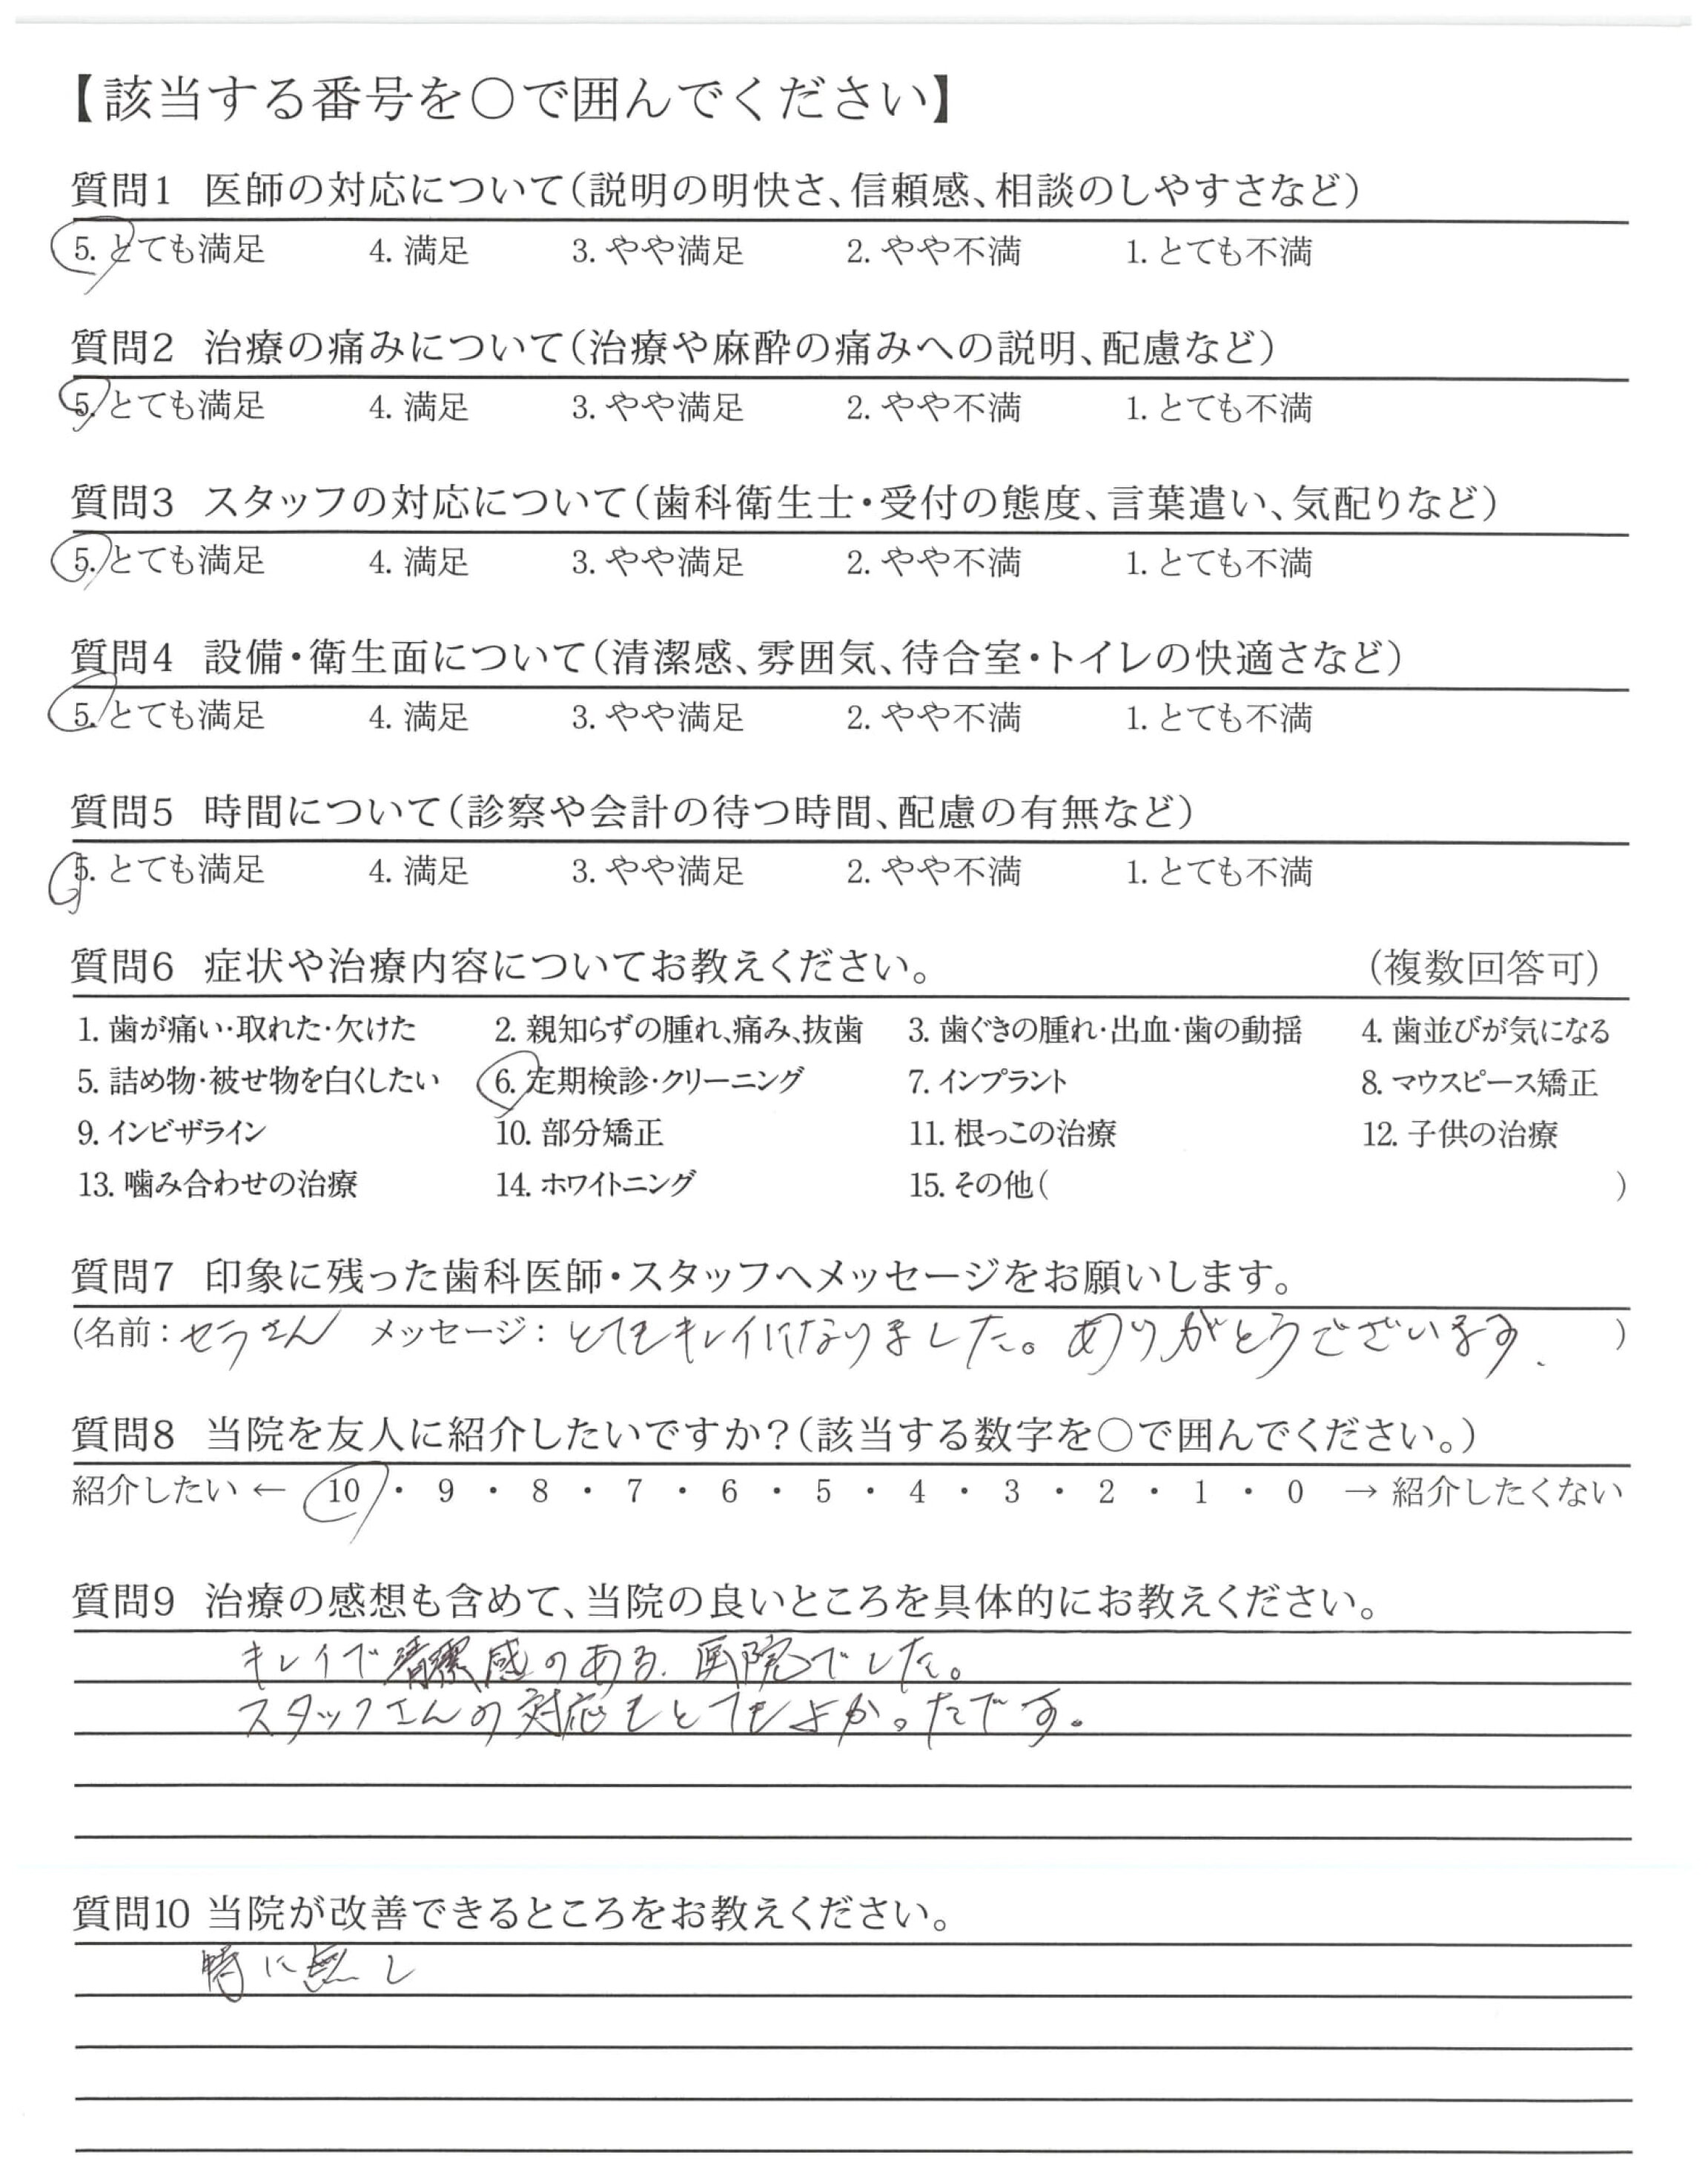 【該当する番号を〇で囲んでください】
質問1 医師の対応について(説明の明快さ、信頼感、相談のしやすさなど)
5. とても満足 4. 満足 3. やや満足 2. やや不満 1. とても不満
質問2 治療の痛みについて(治療や麻酔の痛みへの説明、配慮など)
5. とても満足 4. 満足 3. やや満足 2. やや不満 1. とても不満
質問3 スタッフの対応について(歯科衛生士・受付の態度、言葉遣い、気配りなど)
5. とても満足 4. 満足 3. やや満足 2. やや不満 1. とても不満
質問4 設備・衛生面について(清潔感、雰囲気、待合室・トイレの快適さなど)
5. とても満足 4. 満足 3. やや満足 2. やや不満 1. とても不満
質問5 時間について(診察や会計の待つ時間、配慮の有無など)
5. とても満足 4. 満足 3. やや満足 2. やや不満 1. とても不満
質問6 症状や治療内容についてお教えください。 (複数回答可)
1. 歯が痛い・取れた・欠けた 2. 親知らずの腫れ、痛み、抜歯 3. 歯ぐきの腫れ・出血・歯の動揺 4. 歯並びが気になる
5. 詰め物・被せ物を白くしたい 6. 定期検診・クリーニング 7. インプラント 8. マウスピース矯正
9. インビザライン 10. 部分矯正 11. 根っこの治療 12. 子供の治療
13. 噛み合わせの治療 14. ホワイトニング 15. その他( )
質問7 印象に残った歯科医師・スタッフへメッセージをお願いします。
(名前：セラさん メッセージ：とてもキレイになりました。ありがとうございます. )
質問8 当院を友人に紹介したいですか？(該当する数字を〇で囲んでください。)
紹介したい ← 10 ・ 9 ・ 8 ・ 7 ・ 6 ・ 5 ・ 4 ・ 3 ・ 2 ・ 1 ・ 0 → 紹介したくない
質問9 治療の感想も含めて、当院の良いところを具体的にお教えください。
キレイで清潔感のある.医院でした。
スタッフさんの対応もとてもよかったです。
質問10 当院が改善できるところをお教えください。
特に無し